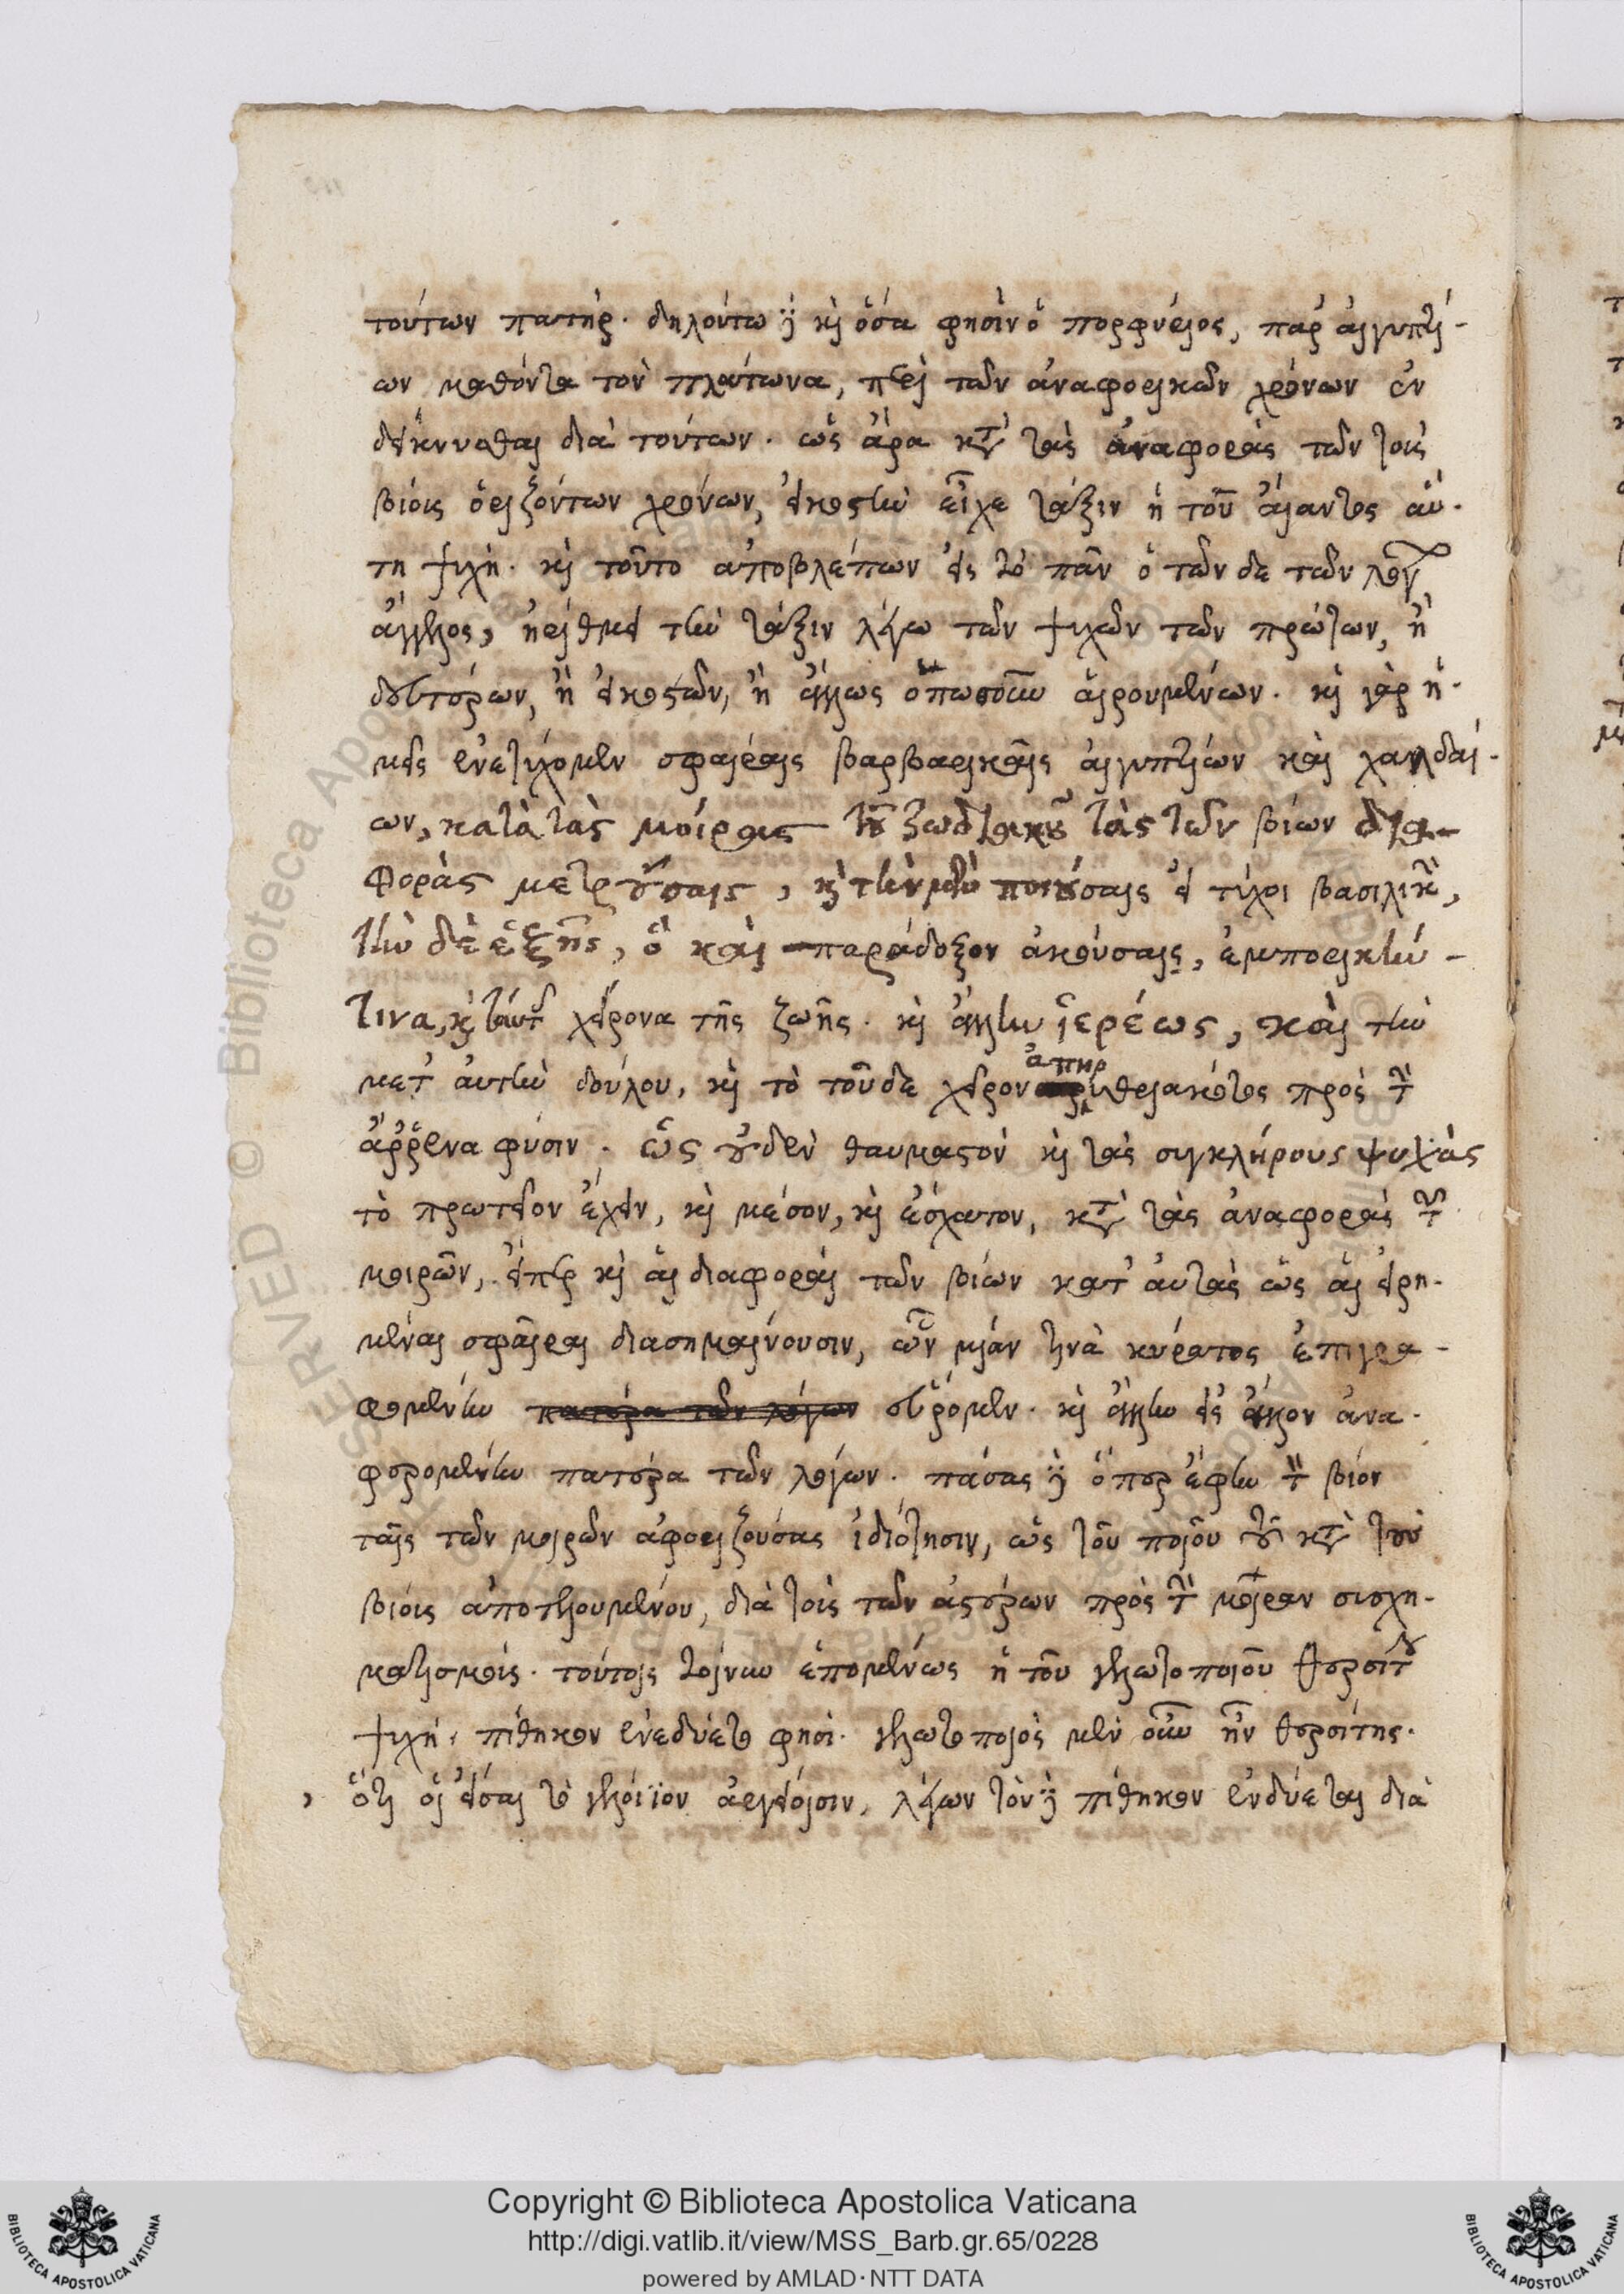 τούτων πατήρ. δηλούτω δὲ καὶ ὅσα φησὶν ὁ πορφύριος, παρ' αἰγυπτί-
ων μαθόντα τὸν πλάτωνα, περὶ τῶν ἀναφορικῶν χρόνων ἐν
δείκνυσθαι διὰ τούτων. ὡς ἄρα κατὰ τὰς ἀναφορὰς τῶν τοὺς
βίους ὁριζόντων χρόνων, εἰκοστὴν εἶχε τάξιν ἡ τοῦ αἴαντος αὕ-
τη ψυχή. καὶ τοῦτο ἀποβλέπων εἰς τὸ πᾶν ὁ τῶν δε τῶν λόγων
ἄγγελος, ἠρίθμει τὴν τάξιν λέγω τῶν ψυχῶν τῶν πρώτων, ἢ
δευτέρων, ἢ εἰκοστῶν, ἢ ἄλλως ὁπωσοῦν αἱρουμένων. καὶ γὰρ ἡ-
μεῖς ἐνετύχομεν σφαίραις βαρβαρικαῖς αἰγυπτίων καὶ χαλδαί-
ων, κατὰ τὰς μοίρας τοῦ ζωδιακοῦ τὰς τῶν βίων δια-
φορὰς μετρούσαις, καὶ τὴν μὲν ποιούσαις εἰ τύχοι βασιλικὴν,
τὴν δὲ ἑξῆς, ὃ καὶ παράδοξον ἀκούσαις, ἐμπορικήν
τινα, καὶ ταύτης χείρονα τῆς ζωῆς. καὶ ἄλλην ἱερέως, καὶ τὴν
μετ' αὐτὴν δούλου, καὶ τὸ τοῦδε χεῖρον ἀπηρυθριακότος πρὸς τὴν
ἄῤῥενα φύσιν. ὡς οὐδὲν θαυμαστὸν καὶ τὰς συγκλήρους ψυχὰς
τὸ πρωτεῖον ἔχειν, καὶ μέσον, καὶ ἔσχατον, κατὰ τὰς ἀναφορὰς τῶν
μοιρῶν, εἴπερ καὶ αἱ διαφοραὶ τῶν βίων κατ' αὐτὰς ὡς αἱ εἰρη-
μέναι σφαῖραι διασημαίνουσιν, ὧν μίαν τινὰ κύρατος ἐπιγρα-
φομένην πατέρα τῶν λόγων εὕρομεν. καὶ ἄλλην εἰς ἄλλον ἀνα-
φερομένην πατέρα τῶν λόγων. πάσας δὲ ὅπερ ἔφην τὸν βίον
ταῖς τῶν μοιρῶν ἀφοριζούσας ἰδιότησιν, ὡς τοῦ ποιοῦ τοῦ κατὰ τοὺς
βίους ἀποτελουμένου, διὰ τοὺς τῶν ἀστέρων πρὸς τὴν μοῖραν συσχη-
ματισμούς. τούτοις τοίνυν ἑπομένως ἡ τοῦ γελωτοποιοῦ θερσίτου
ψυχή, πίθηκον ἐνεδύετο φησί. γελωτοποιὸς μὲν οὖν ἦν θερσίτης.
ὅτι οἱ εἴσαι το γελοίϊον ἀργείοισιν, λέγων τὸν δὲ πίθηκον ἐνδύεται διὰ
Copyright © Biblioteca Apostolica Vaticana
http://digi.vatlib.it/view/MSS_Barb.gr.65/0228
powered by AMLAD·NTT DATA